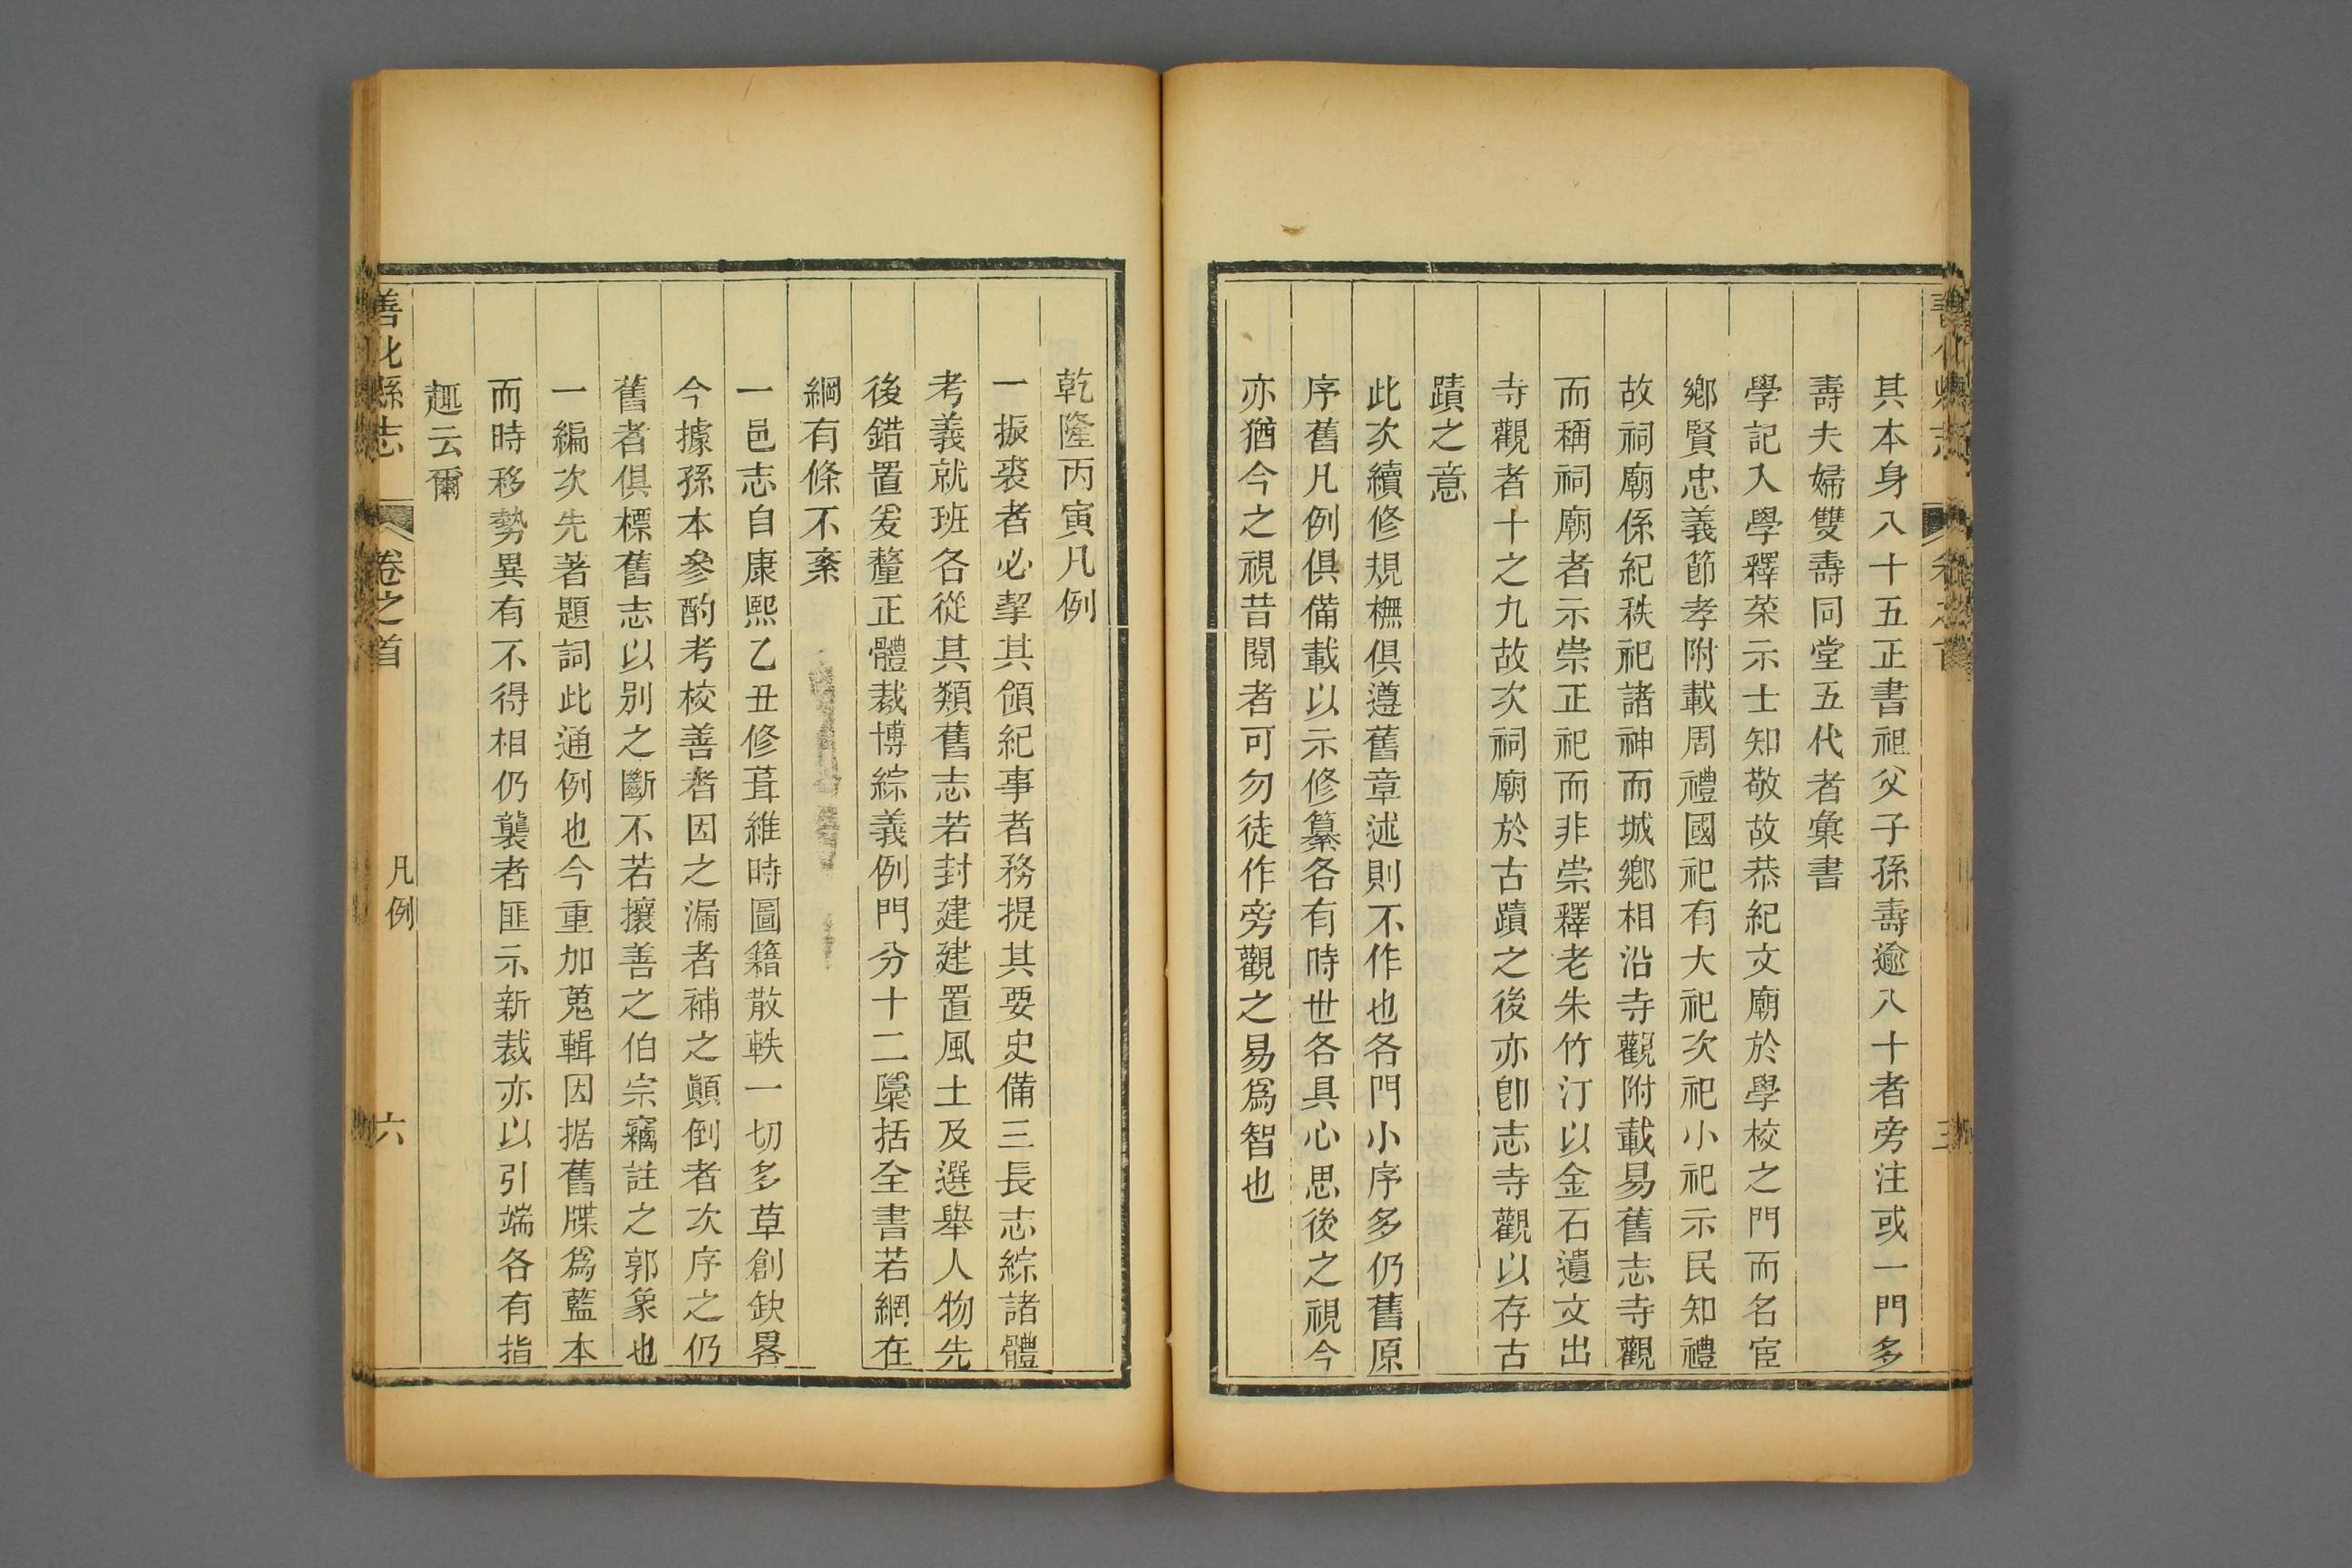 其本身八十五正書祖父子孫壽逾八十者旁注或一門多
壽夫婦雙壽同堂五代者彙書
學記入學釋菜示士知敬故恭紀文廟於學校之門而名宦
鄉賢忠義節孝附載周禮國祀有大祀次祀小祀示民知禮
故祠廟係紀秩祀諸神而城鄉相沿寺觀附載易舊志寺觀
而稱祠廟者示崇正祀而非崇釋老朱竹汀以金石遺文出
寺觀者十之九故次祠廟於古蹟之後亦卽志寺觀以存古
蹟之意
此次續修規橅俱遵舊章述則不作也各門小序多仍舊原
序舊凡例俱備載以示修纂各有時世各具心思後之視今
亦猶今之視昔閱者可勿徒作旁觀之易爲智也
乾隆丙寅凡例
一振裘者必挈其領紀事者務提其要史備三長志綜諸體
考義就班各從其類舊志若封建建置風土及選舉人物先
後錯置爰釐正體裁博綜義例門分十二隱括全書若網在
綱有條不紊
一邑志自康熙乙丑修葺維時圖籍散軼一切多草創缺畧
今據孫本參酌考校善者因之漏者補之顚倒者次序之仍
舊者俱標舊志以別之斷不若攘善之伯宗竊註之郭象也
一編次先著題詞此通例也今重加蒐輯因据舊牒爲藍本
而時移勢異有不得相仍襲者匪示新裁亦以引端各有指
趣云爾
善化縣志 卷之首 凡例 六